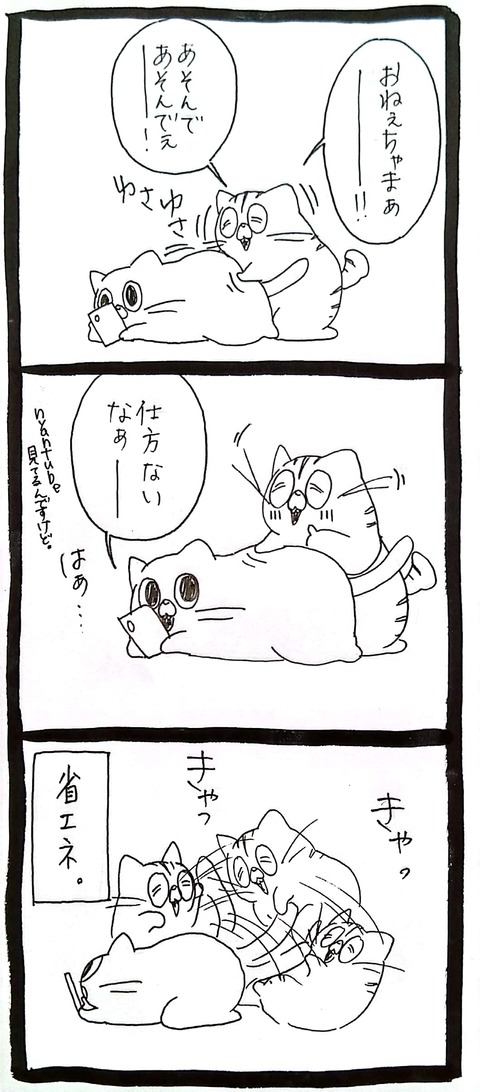 おねぇちゃまぁ
ー!!
あそんで
あそんでぇ
ー!
ゆさゆさ
仕方ない
なぁー
nyantube
見てるんですけど。
はぁ…
きゃっ
きゃっ
省エネ。